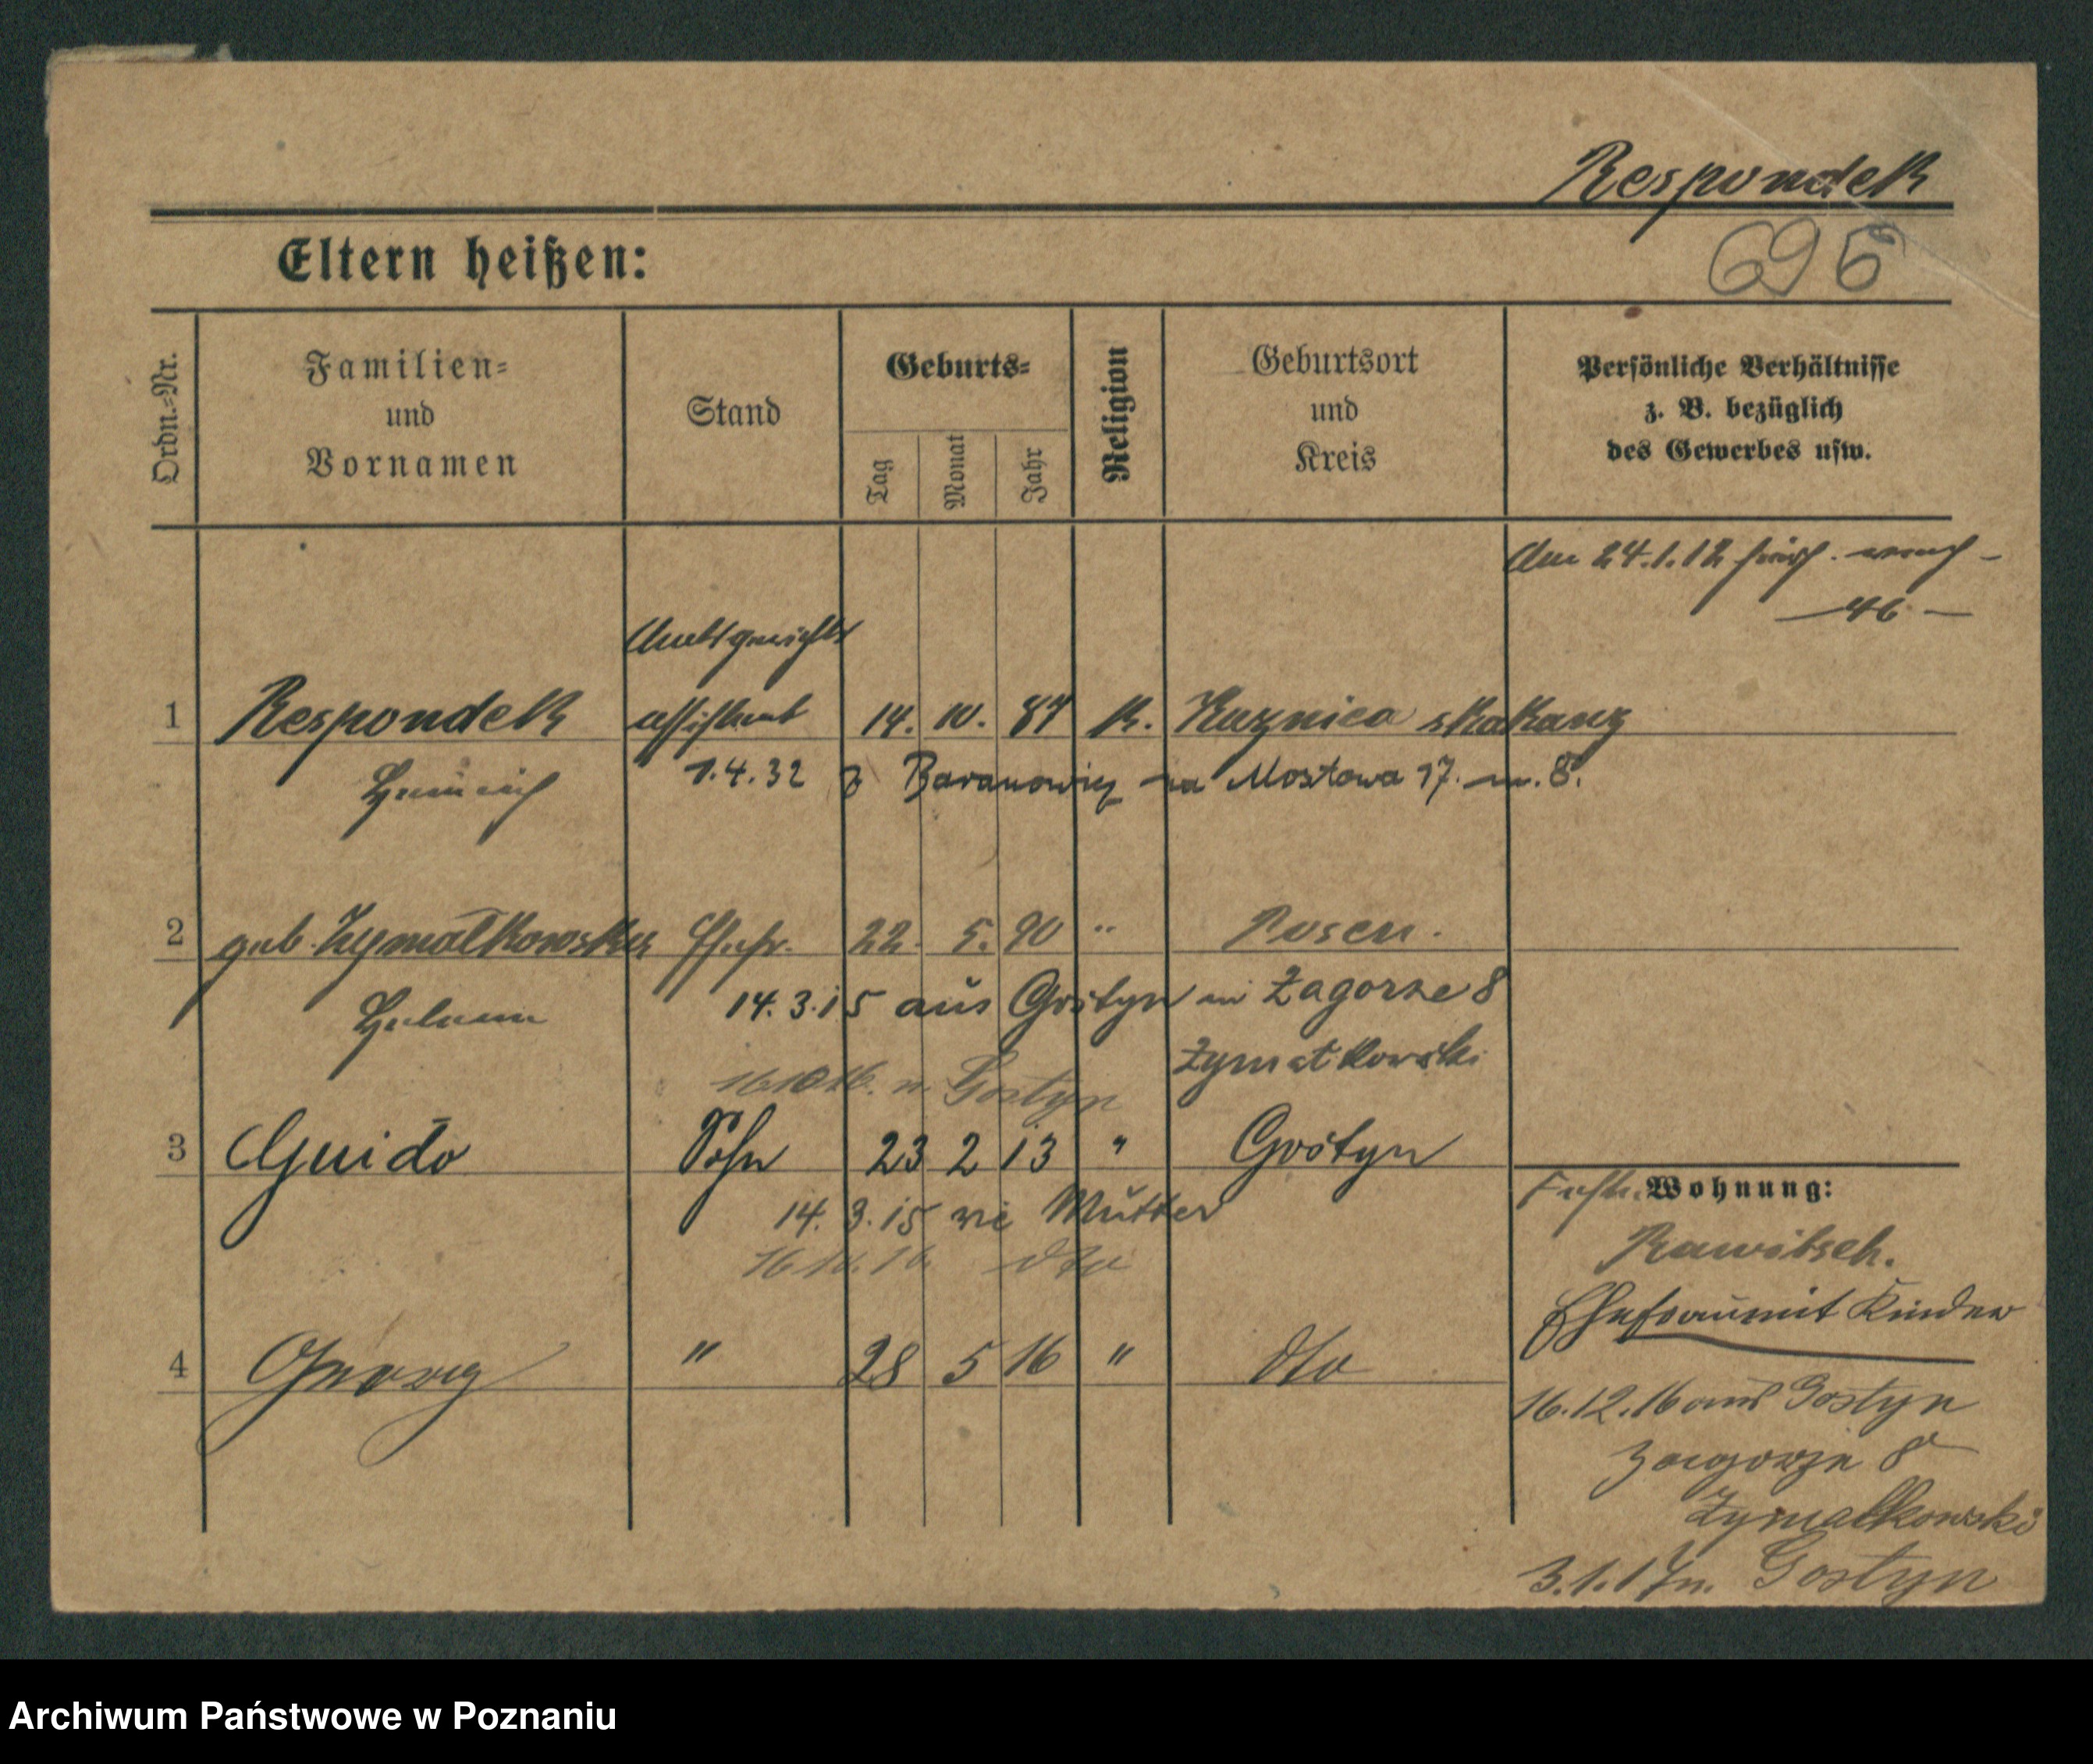 Respondek
Eltern heißen:
695
Ordn.-Nr.
Familien-
und
Vornamen
Stand
Geburts-
Tag
Monat
Jahr
Religion
Geburtsort
und
Kreis
Persönliche Verhältnisse
z. B. bezüglich
des Gewerbes usw.
Am 24.1.12
— 46 —
Amtsgerichts
1 Respondek assistent 14. 10. 87 K. Kuznica skakawz
Heinrich 1.4.32 z Baranowicz na Mostowa 17. m. 8.
2 geb. Zymalkowska Ehefr. 22. 5. 90 " Posen.
Helene 14.3.15 aus Gostyn in Zagorze 8
Zymalkowski
16.10.16. n. Gostyn
3 Guido Sohn 23 2 13 " Gostyn
14.3.15 wie Mutter
dto
4 Georg " 28 5 16 " dto
Wohnung:
Rawitsch.
Ehefrau mit Kinder
16.12.16 aus Gostyn
Zagorze 8
Zymalkowski
3.1.17 n. Gostyn
Archiwum Państwowe w Poznaniu